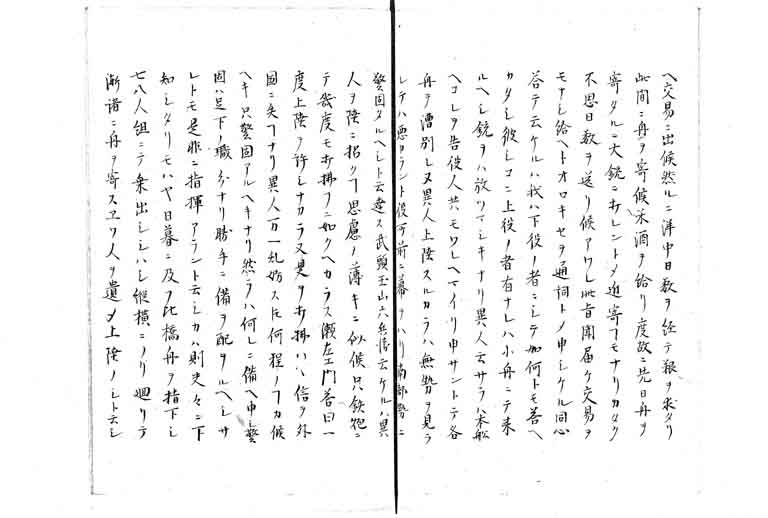 ヘ交易ニ出候然ルニ洋中日数ヲ経テ粮ヲ求タリ
此間ニ舟ヲ寄候米酒ヲ給リ度故ニ先日舟ヲ
寄タルニ大銃ニオレントメ近寄フモナリカタク
不思日数ヲ送リ候アワレ此旨聞届ケ交易ヲ
モナシ給ヘトオロキセヲ通詞トノ申シケル同心
答テ云ケルハ我ハ下役ノ者ニシテ如何トモ答ヘ
カタシ彼シコニ上役ノ者有ナレハ小舟ニテ来
ルヘシ銃ヲハ放ツマシキナリ異人云サラハ本船
ヘコレヲ告役人共モワレヘマイリ申サントテ各
舟ヲ漕別レヌ異人上陸スルカラハ無勢ヲ見ラ
レテハ悪カラント役所前ニ幕ヲハリ南部勢ニ
警固タルヘシト云達ス武頭玉山六兵衛云ケルハ異
人ヲ陸ニ招クフ思慮ノ薄キニ似候只鉄炮ニ
テ幾度モオ拂フニ如クヘカラス瀬左エ門答曰一
度上陸ヲ許シナカラ又是ヲオ拂ハハ信ヲ外
国ニ失フナリ異人万一乱妨ストモ何程ノフカ候
ヘキ只警固アルヘキナリ然ラハ何レニ備ヘ申シ警
固ハ足下ノ職分ナリ勝手ニ備ヲ配ラルヘシサ
レトモ是非ニ指揮アラント云シカハ則夫々ニ下
知シタリモハヤ日暮ニ及フ比橋舟ヲ指下シ
七八人組ニテ乗出シシハシ縦横ニノリ廻リテ
漸諸ニ舟ヲ寄スヱツ人ヲ遣メ上陸ノシトテシ